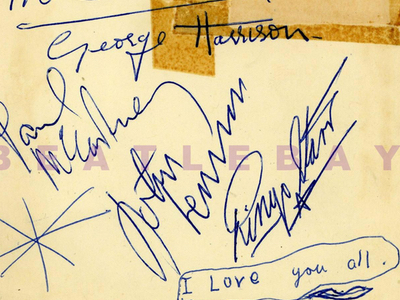 George Harrison
Paul
McCartney
John
Lennon
Ringo Starr
BEATLEBAY
I Love you all.